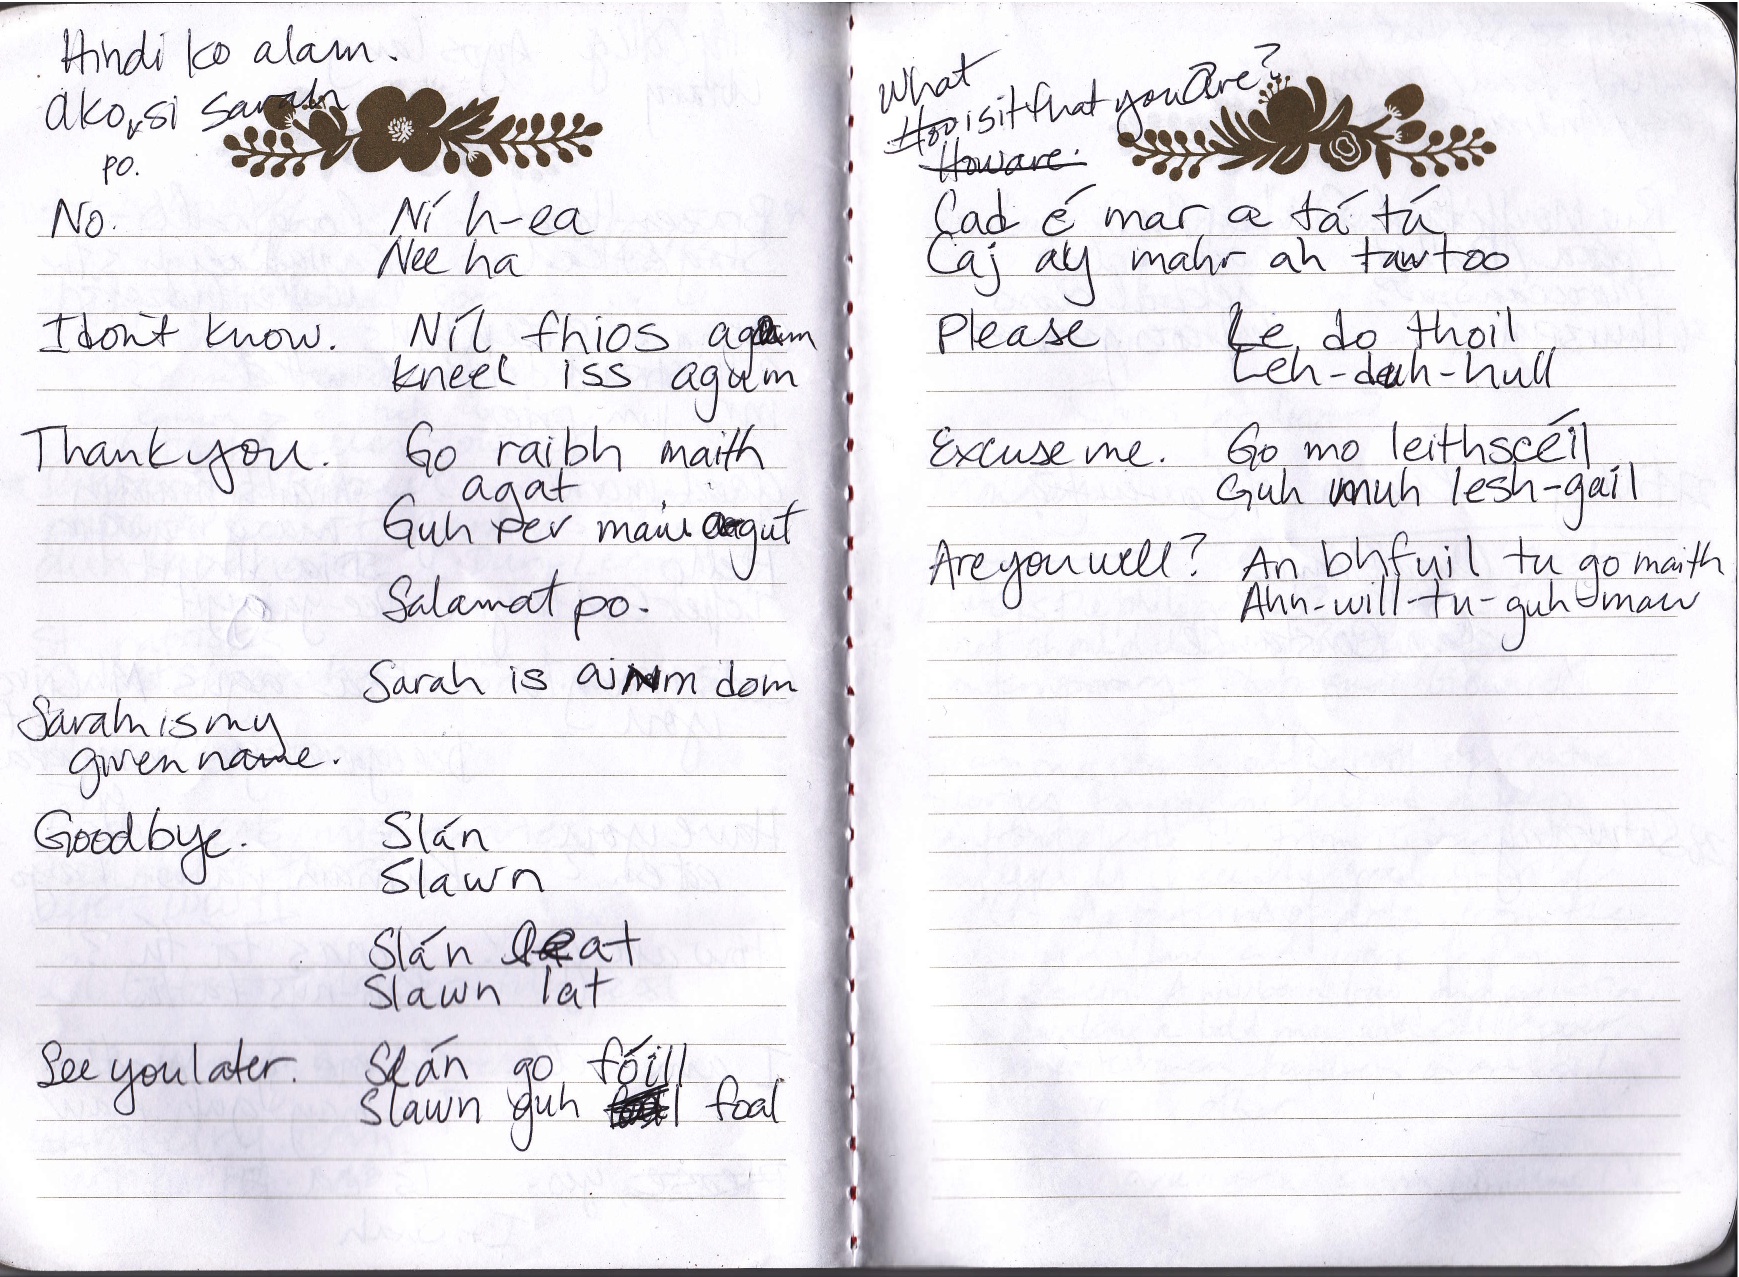 Hindi ko alam.
Ako, si Sarah
po.
No. Ní h-ea
Nee ha
I don't know. Níl fhios agam
kneel iss agum
Thank you. Go raibh maith
agat
Guh rer maw agut
Salamat po.
Sarah is ainm dom
Sarah is my
given name.
Goodbye. Slán
Slawn
Slán leat
Slawn lat
See you later. Slán go fóill
Slawn guh foal
What
How is it that you are?
How are.
Cad é mar a tá tú
Caj ay mahr ah taw too
Please Le do thoil
Leh-duh-hull
Excuse me. Go mo leithscéil
Guh muh lesh-gail
Are you well? An bhfuil tu go maith
Ahn-will-tu-guh maw